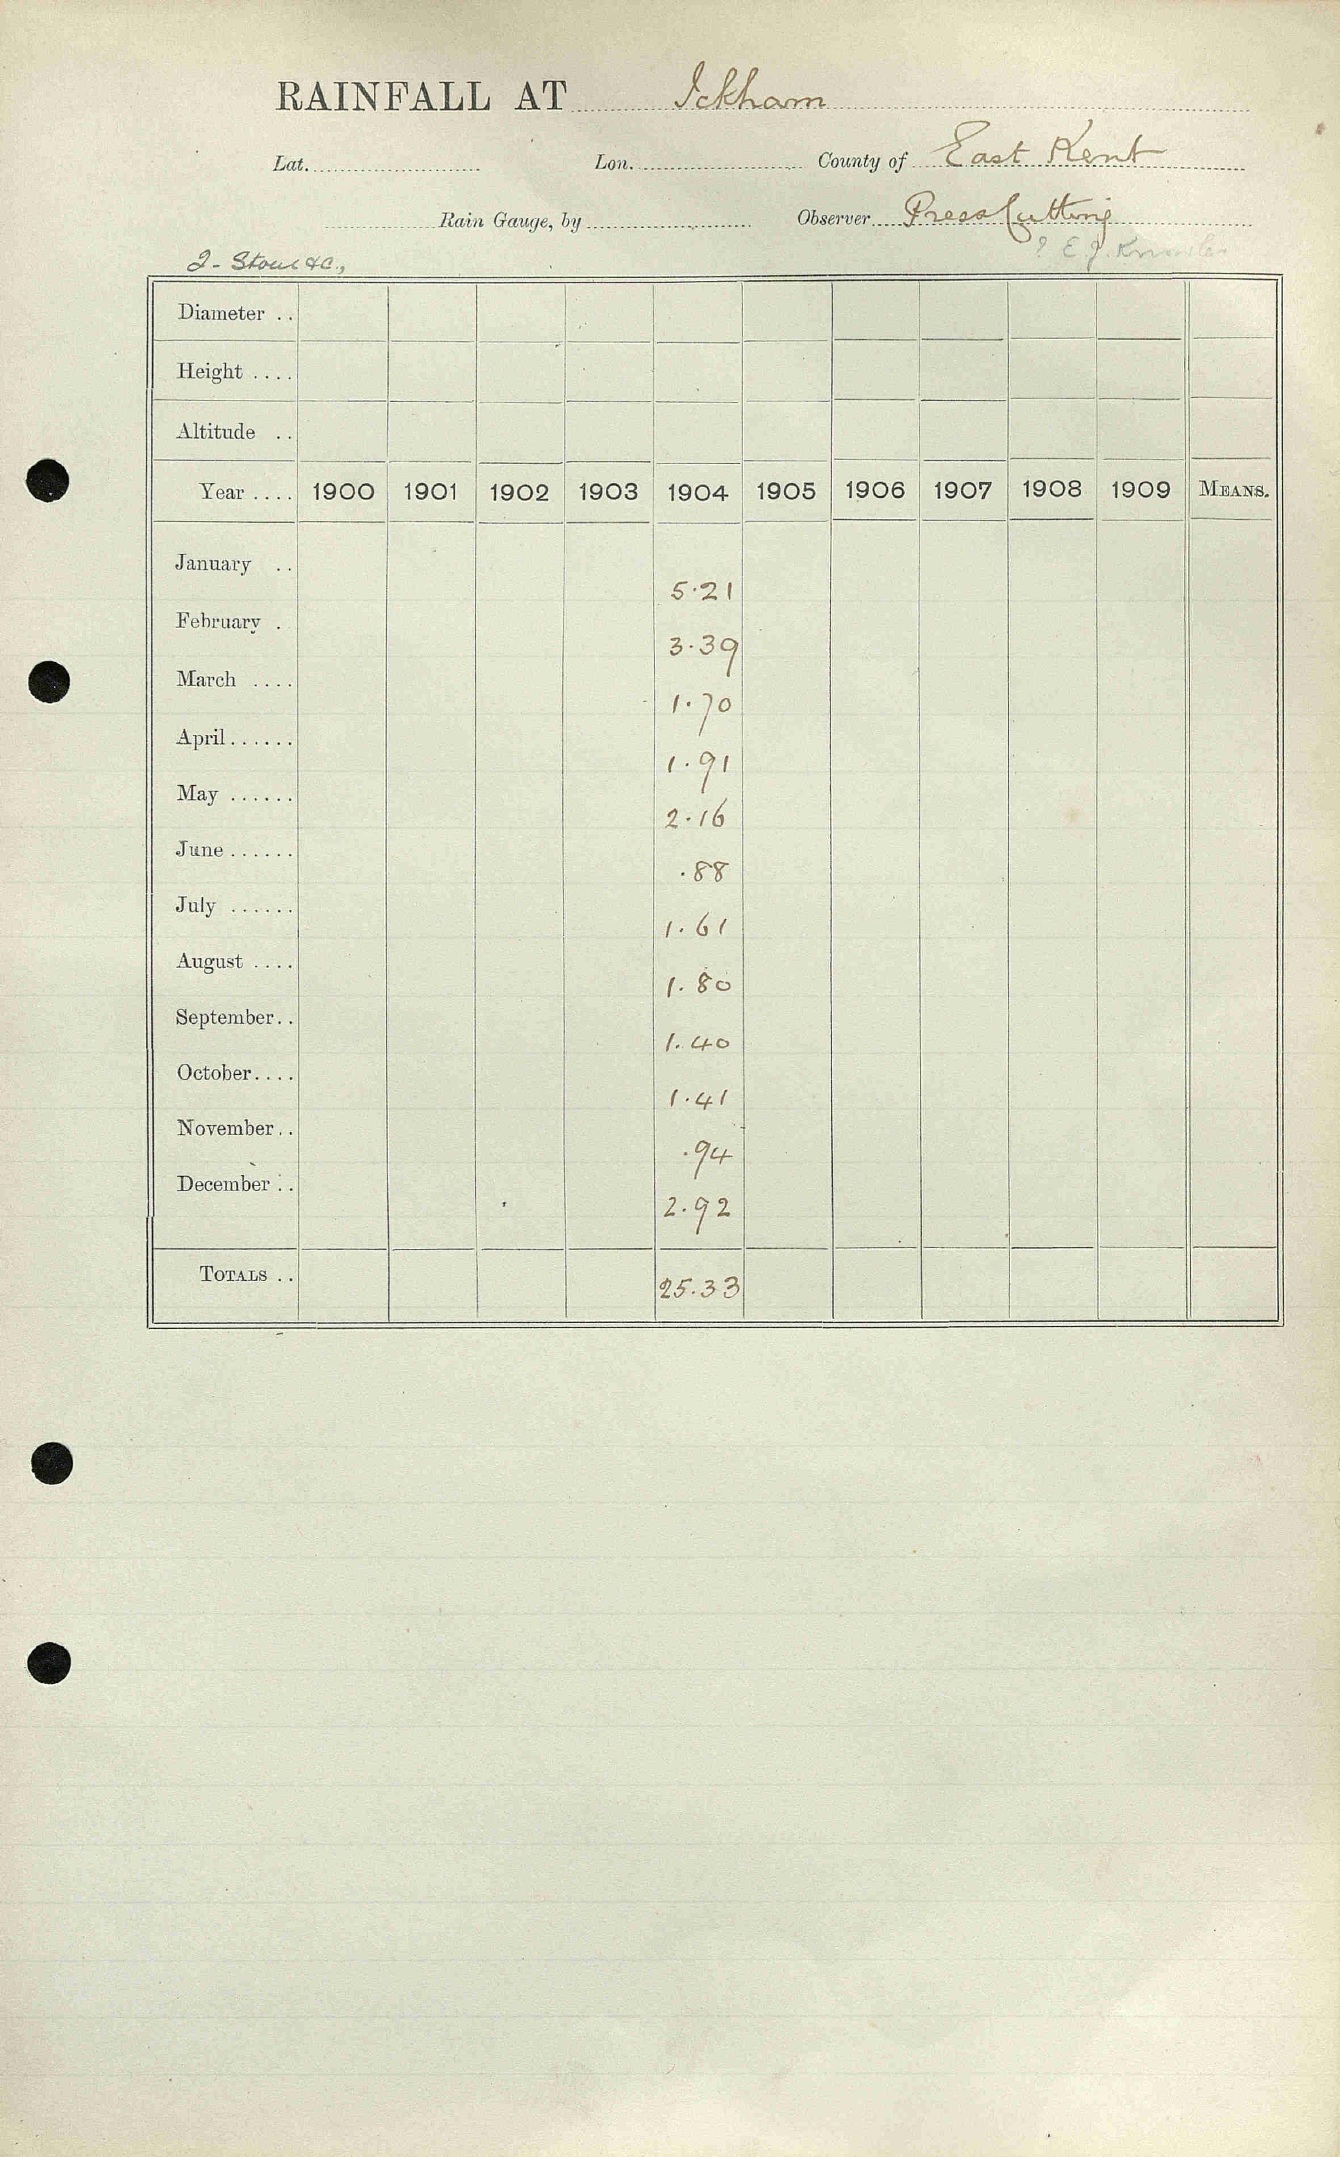 RAINFALL AT Ickham
Lat. Lon. County of East Kent
Rain Gauge, by Observer Press Cutting
? E. J. Knowler
2 - Stour &c.,
Diameter ..
Height ....
Altitude ..
Year .... 1900 1901 1902 1903 1904 1905 1906 1907 1908 1909 MEANS.
January ..
5.21
February .
3.39
March ....
1.70
April ......
1.91
May ......
2.16
June ......
.88
July ......
1.61
August ....
1.80
September..
1.40
October....
1.41
November..
.94
December ..
2.92
TOTALS .. 25.33